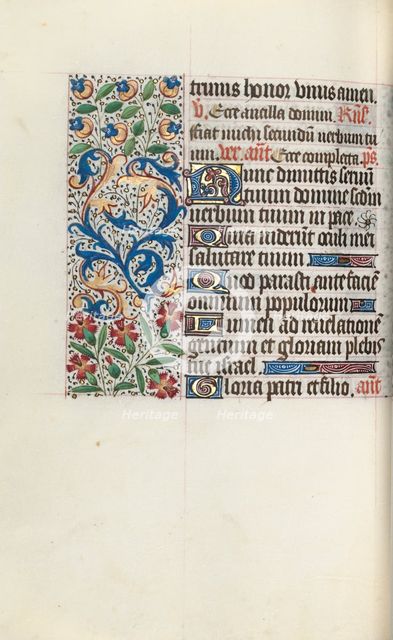 trinus honor vnus amen.
v. Ecce ancilla domini. Rus̄.
fiat michi secundū uerbum tu
um. ver. añt Ecce completa. ps.
Nunc dimittis seruū
tuum domine secūn
uerbum tuum in pace.
Quia uiderūt oculi mei
salutare tuum.
Quod parasti ante faciē
omnium populorum
Lumen ad reuelationē
gentium et gloriam plebis
tue israel.
Gloria patri et filio. añt
Heritage
Heritage